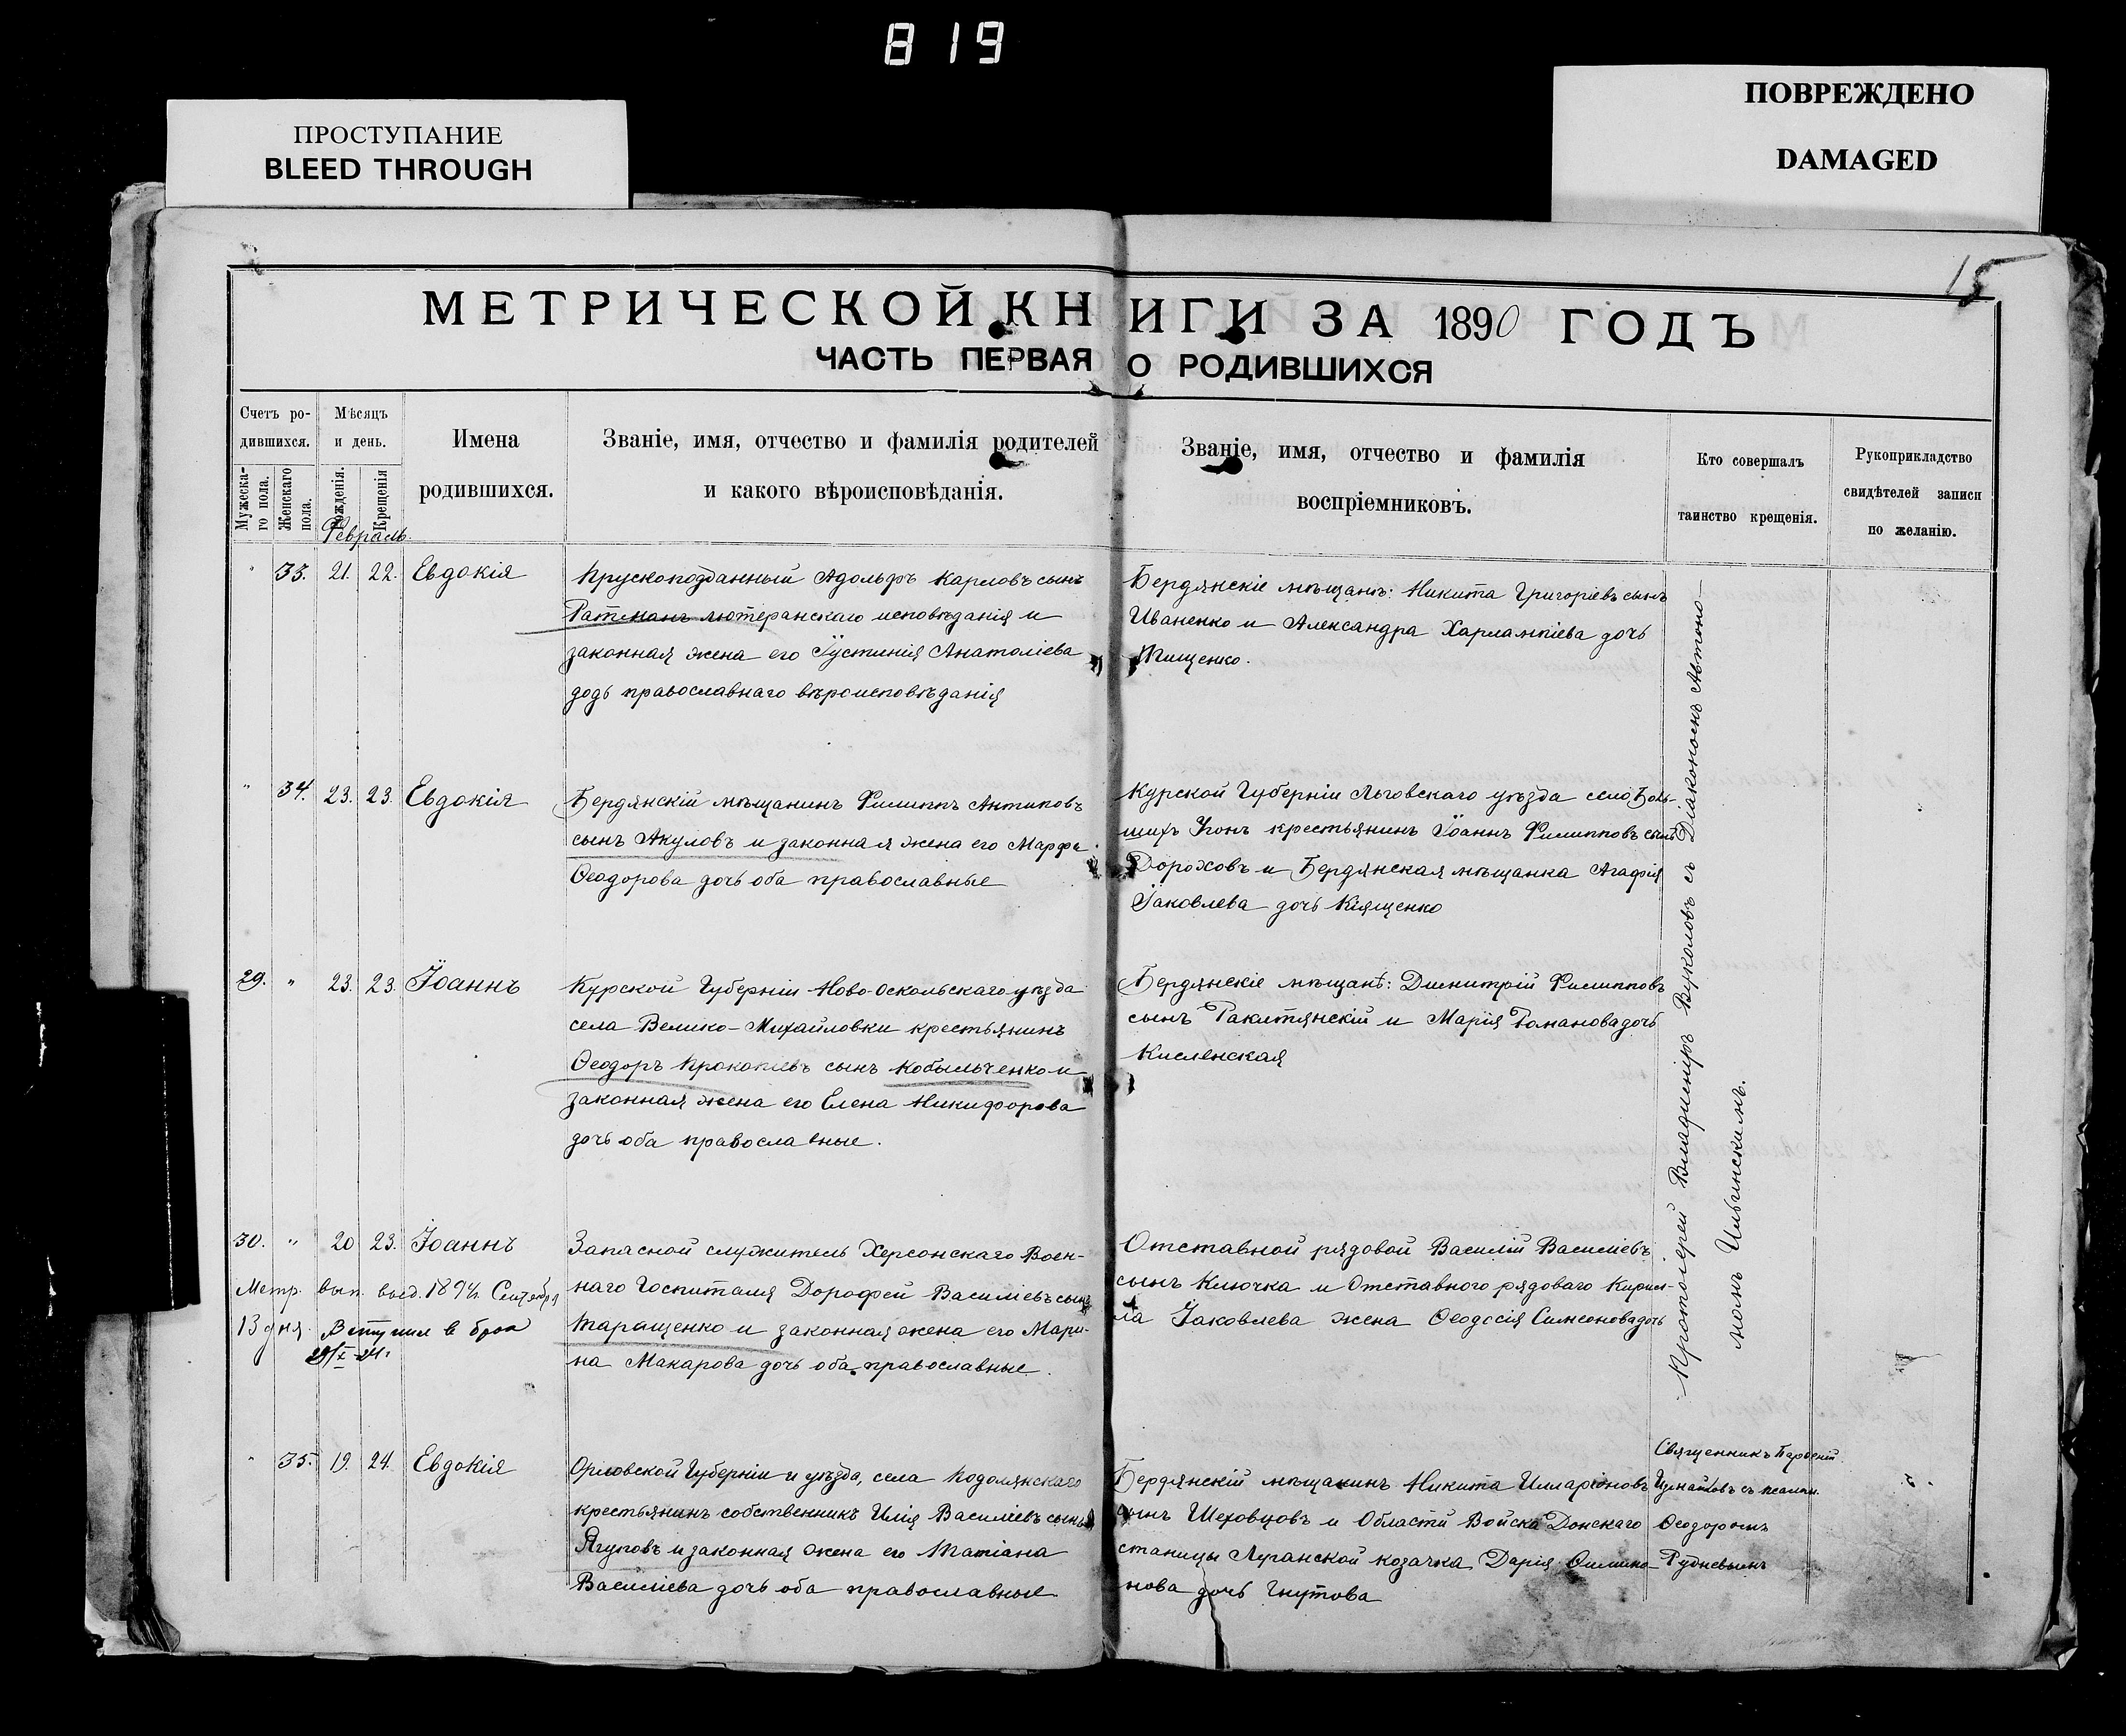 819
ПРОСТУПАНИЕ
BLEED THROUGH
ПОВРЕЖДЕНО
DAMAGED
15
МЕТРИЧЕСКОЙ КНИГИ ЗА 1890 ГОДЪ
ЧАСТЬ ПЕРВАЯ О РОДИВШИХСЯ
Счетъ ро-
дившихся.
Мужеска-
го пола.
Женскаго
пола.
Мѣсяцъ
и день.
Рожденія.
Крещенія
Имена
родившихся.
Званіе, имя, отчество и фамилія родителей
и какого вѣроисповѣданія.
Званіе, имя, отчество и фамилія
воспріемниковъ.
Кто совершалъ
таинство крещенія.
Рукоприкладство
свидѣтелей записи
по желанію.
Февраль.
" 33. 21. 22. Евдокія
Прускоподданный Адольфъ Карловъ сынъ
Ратманъ лютеранскаго исповѣданія и
законная жена его Іустинія Анатоліева
дочь православнаго вѣроисповѣданія
Бердянскіе мѣщане: Никита Григоріевъ сынъ
Иваненко и Александра Харлампіева дочь
Тищенко.
" 34. 23. 23. Евдокія
Бердянскій мѣщанинъ Филиппъ Антиповъ
сынъ Акуловъ и законная жена его Марфа
Ѳеодорова дочь оба православные
Курской Губерніи Льговскаго уѣзда село Боль-
шихъ Угонъ крестьянинъ Іоаннъ Филипповъ сынъ
Дороховъ и Бердянская мѣщанка Агафія
Іаковлева дочь Кіященко
29. " 23. 23. Іоаннъ
Курской Губерніи Ново-Оскольскаго уѣзда
села Велико-Михайловки крестьянинъ
Ѳеодоръ Прокопіевъ сынъ Кобыльченко и
законная жена его Елена Никифорова
дочь оба православные.
Бердянскіе мѣщанѣ: Димитрій Филипповъ
сынъ Ракитянскій и Марія Романова дочь
Кислянская
30. " 20 23. Іоаннъ
Метр. вып. выд. 1894 г. Сентября
13 дня. Вступил в брак
Запасной служитель Херсонскаго Воен-
наго Госпиталя Дорофей Василіевъ сынъ
Таращенко и законная жена его Мари-
на Макарова дочь оба православные.
Отставной рядовой Василій Василіевъ
сынъ Ключка и Отставного рядоваго Кирил-
ла Іаковлева жена Ѳеодосія Симеонова дочь
Протоіерей Владиміръ Вукколовъ съ Діакономъ Автоно-
момъ Ильинскимъ.
" 35. 19. 24. Евдокія
Орловской Губерніи и уѣзда, села Подолянскаго
крестьянинъ собственникъ Илія Василіевъ сынъ
Ягуповъ и законная жена его Татіана
Василіева дочь оба православные
Бердянскій мѣщанинъ Никита Иларіоновъ
сынъ Шеховцовъ и Области Войска Донскаго
станицы Луганской козачка Дарія Филимо-
нова дочь Гнутова
Священникъ Парѳеній
съ псалом.
Ѳеодоромъ
Рудневымъ